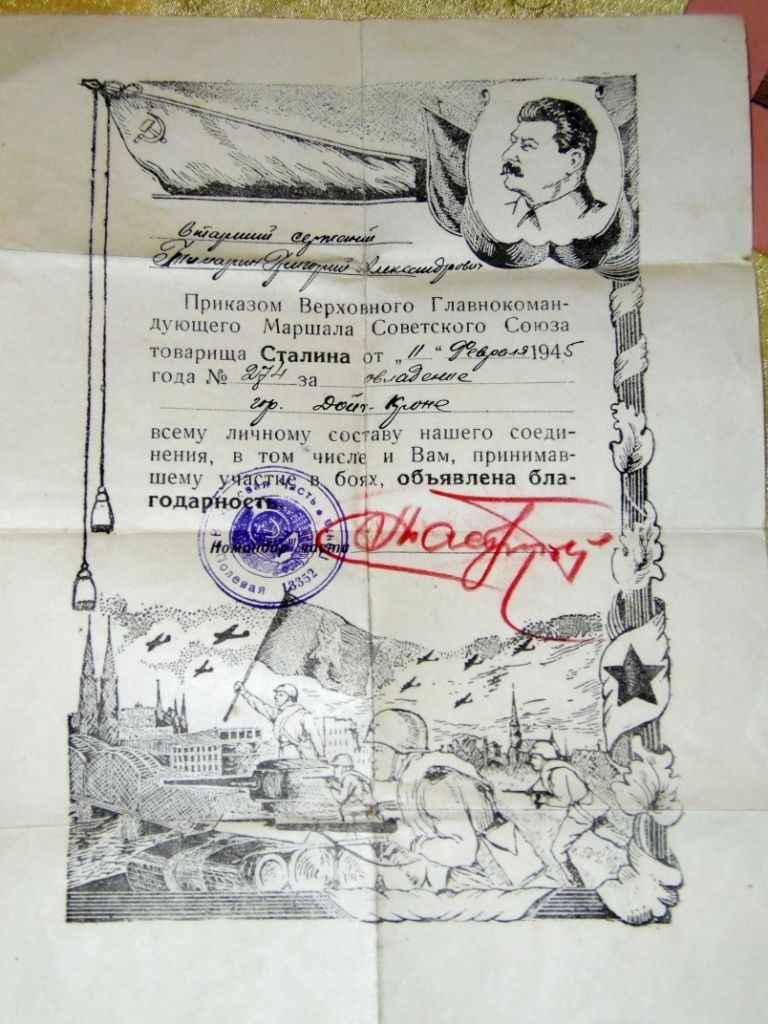 Старший сержант
Тамарин Григорий Александрович
Приказом Верховного Главнокоман-
дующего Маршала Советского Союза
товарища Сталина от „11“ Февраля 1945
года № 274 за овладение
гор. Дойч-Кроне
всему личному составу нашего соеди-
нения, в том числе и Вам, принимав-
шему участие в боях, объявлена бла-
годарность.
Командир части
Полевая Почта
18352
часть